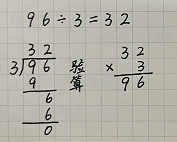 96÷3=32
32
3)96
9
6
6
0
验算
32
×3
96